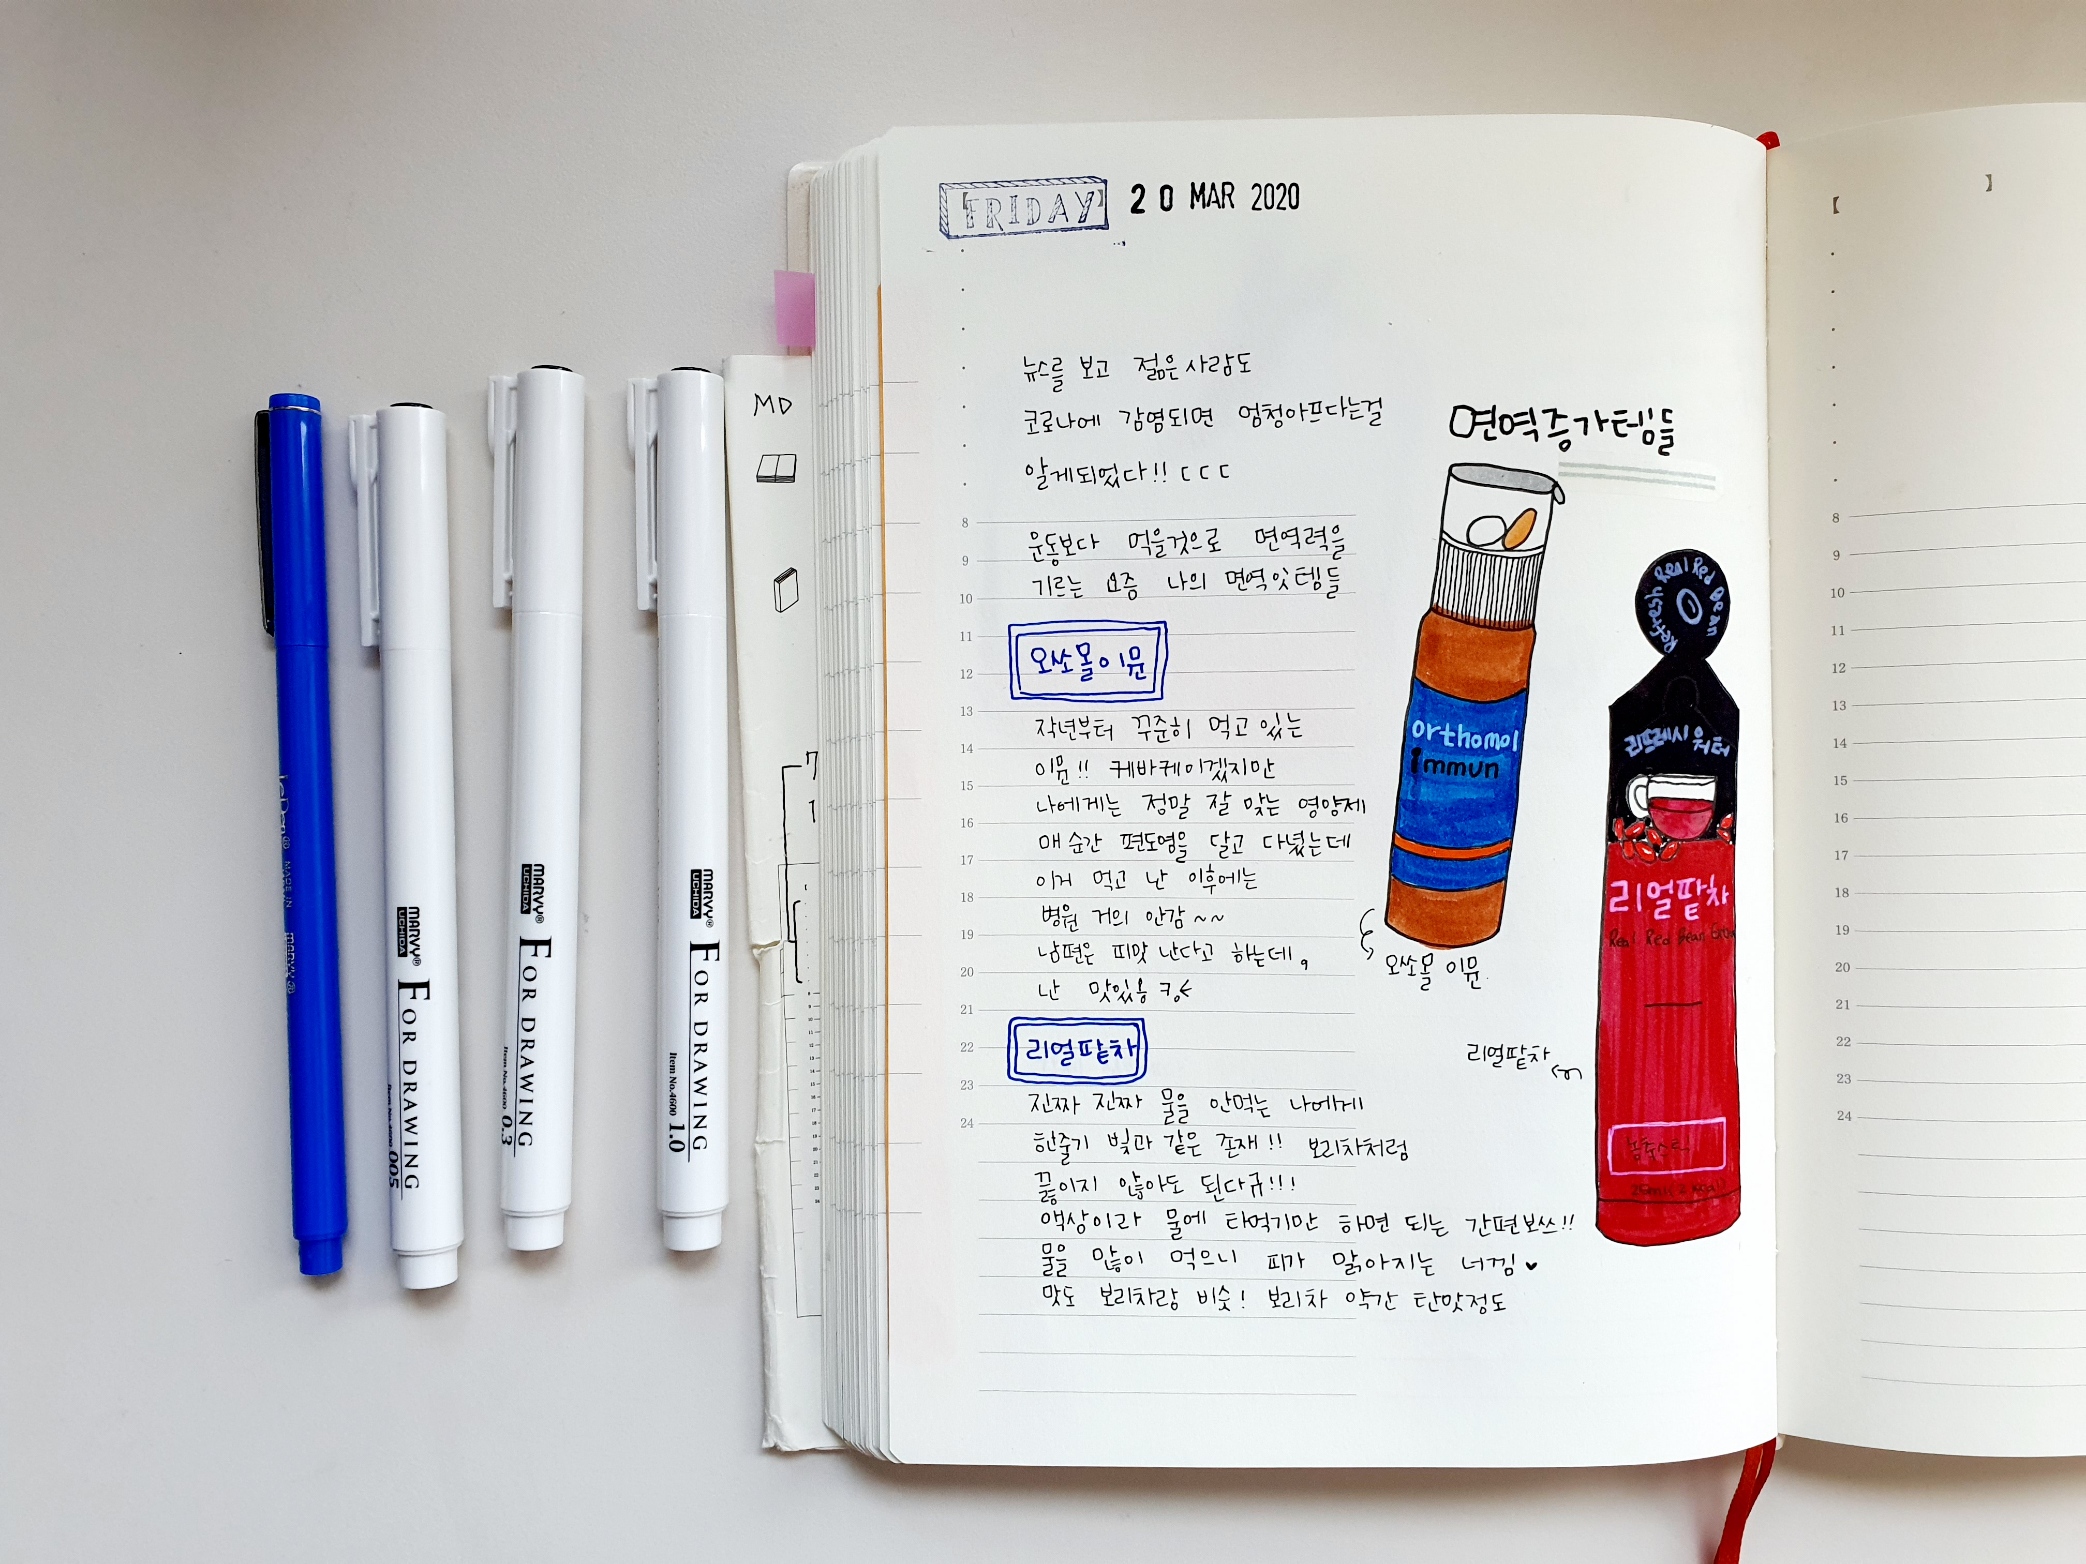 FRIDAY 20 MAR 2020
뉴스를 보고 젊은사람도
코로나에 감염되면 엄청아프다는걸
알게되었다!! ㄷㄷㄷ
운동보다 먹을것으로 면역력을
기르는 요즘 나의 면역잇템들
오쏘몰이뮨
작년부터 꾸준히 먹고있는
이뮨!! 케바케이겠지만
나에게는 정말 잘 맞는 영양제
매순간 편도염을 달고 다녔는데
이거 먹고 난 이후에는
병원 거의 안감~~
남편은 피맛 난다고 하는데,
난 맛있음 킹
리얼팥차
진짜 진짜 물을 안먹는 나에게
한줄기 빛과 같은 존재!! 보리차처럼
끓이지 않아도 된다규!!!
액상이라 물에 타먹기만 하면 되는 간편보쓰!!
물을 많이 먹으니 피가 맑아지는 너낌♥
맛도 보리차랑 비슷! 보리차 약간 탄맛정도
면역증가템들
orthomol
immun
오쏘몰 이뮨
Refresh Real Red Bean
리프레시 워터
리얼팥차
Real Red Bean
리얼팥차
8
9
10
11
12
13
14
15
16
17
18
19
20
21
22
23
24
8
9
10
11
12
13
14
15
16
17
18
19
20
21
22
23
24
MD
LePen MADE IN MARVY
MARVY UCHIDA
FOR DRAWING
Item No.4600 005
MARVY UCHIDA
FOR DRAWING
Item No.4600 0.3
MARVY UCHIDA
FOR DRAWING
Item No.4600 1.0